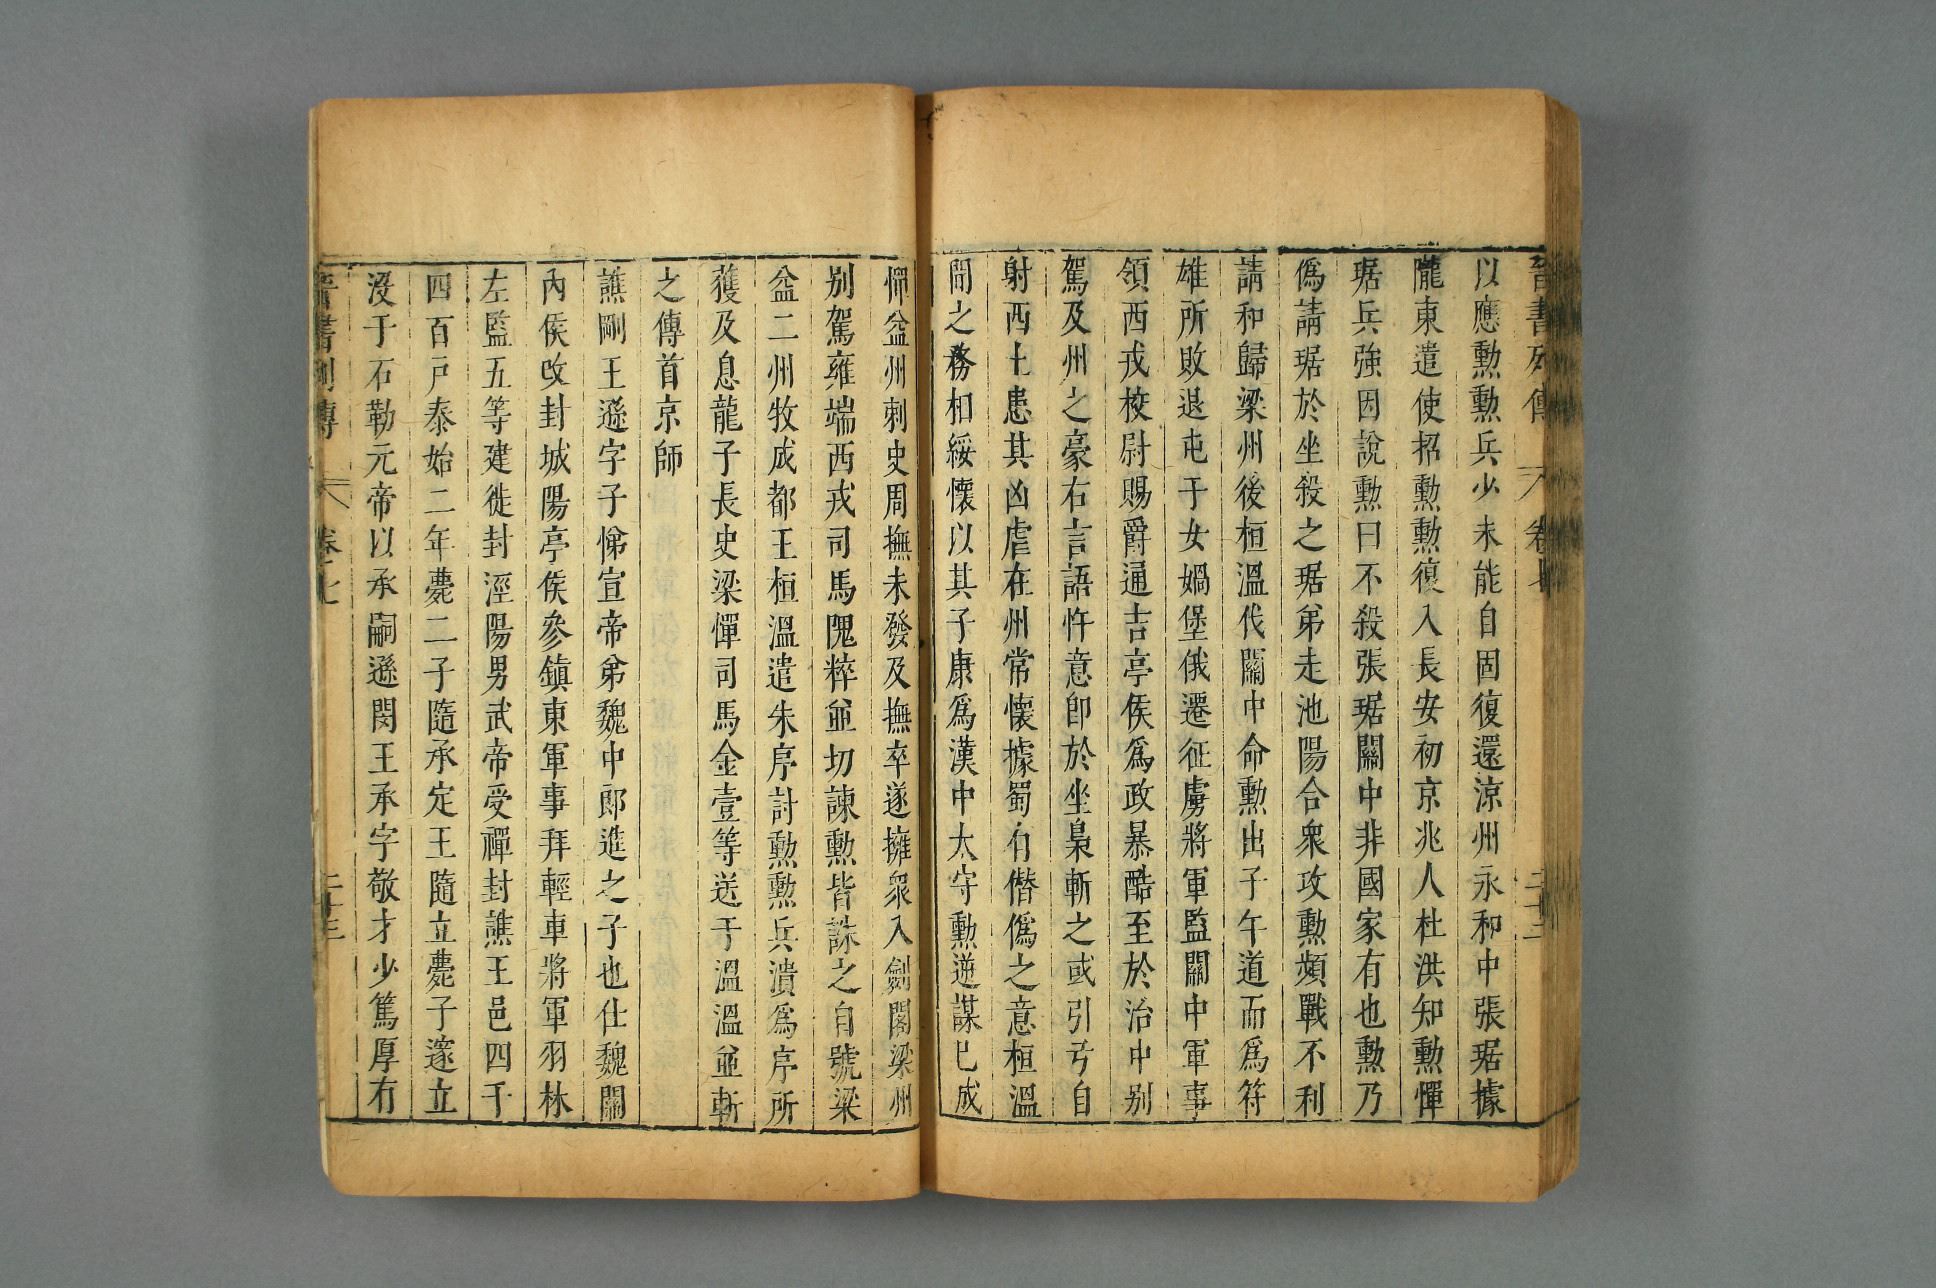 晉書列傳 卷七 二十二
以應勲勲兵少未能自固復還涼州永和中張琚據
隴東遣使招勲勲復入長安初京兆人杜洪知勲憚
琚兵強因說勲曰不殺張琚關中非國家有也勲乃
偽請琚於坐殺之琚弟走池陽合衆攻勲頻戰不利
請和歸梁州後桓溫伐關中命勲出子午道而爲符
雄所敗退屯于女媧堡俄遷征虜將軍監關中軍事
領西戎校尉賜爵通吉亭侯爲政暴酷至於治中别
駕及州之豪右言語忤意即於坐梟斬之或引弓自
射西土患其凶虐在州常懷據蜀有僭僞之意桓溫
聞之務相綏懷以其子康爲漢中太守勲逆謀已成
憚益州刺史周撫未發及撫卒遂擁衆入劍閣梁州
别駕雍端西戎司馬隗粹並切諫勲皆誅之自號梁
益二州牧成都王桓溫遣朱序討勲勲兵潰爲序所
獲及息龍子長史梁憚司馬金壹等送于溫溫並斬
之傳首京師
譙剛王遜字子悌宣帝弟魏中郎進之子也仕魏關
內侯改封城陽亭侯參鎮東軍事拜輕車將軍羽林
左監五等建徙封涇陽男武帝受禪封譙王邑四千
四百戶泰始二年薨二子隨承定王隨立薨子邃立
沒于石勒元帝以承嗣遜閔王承字敬才少篤厚有
晉書列傳 卷七 二十三